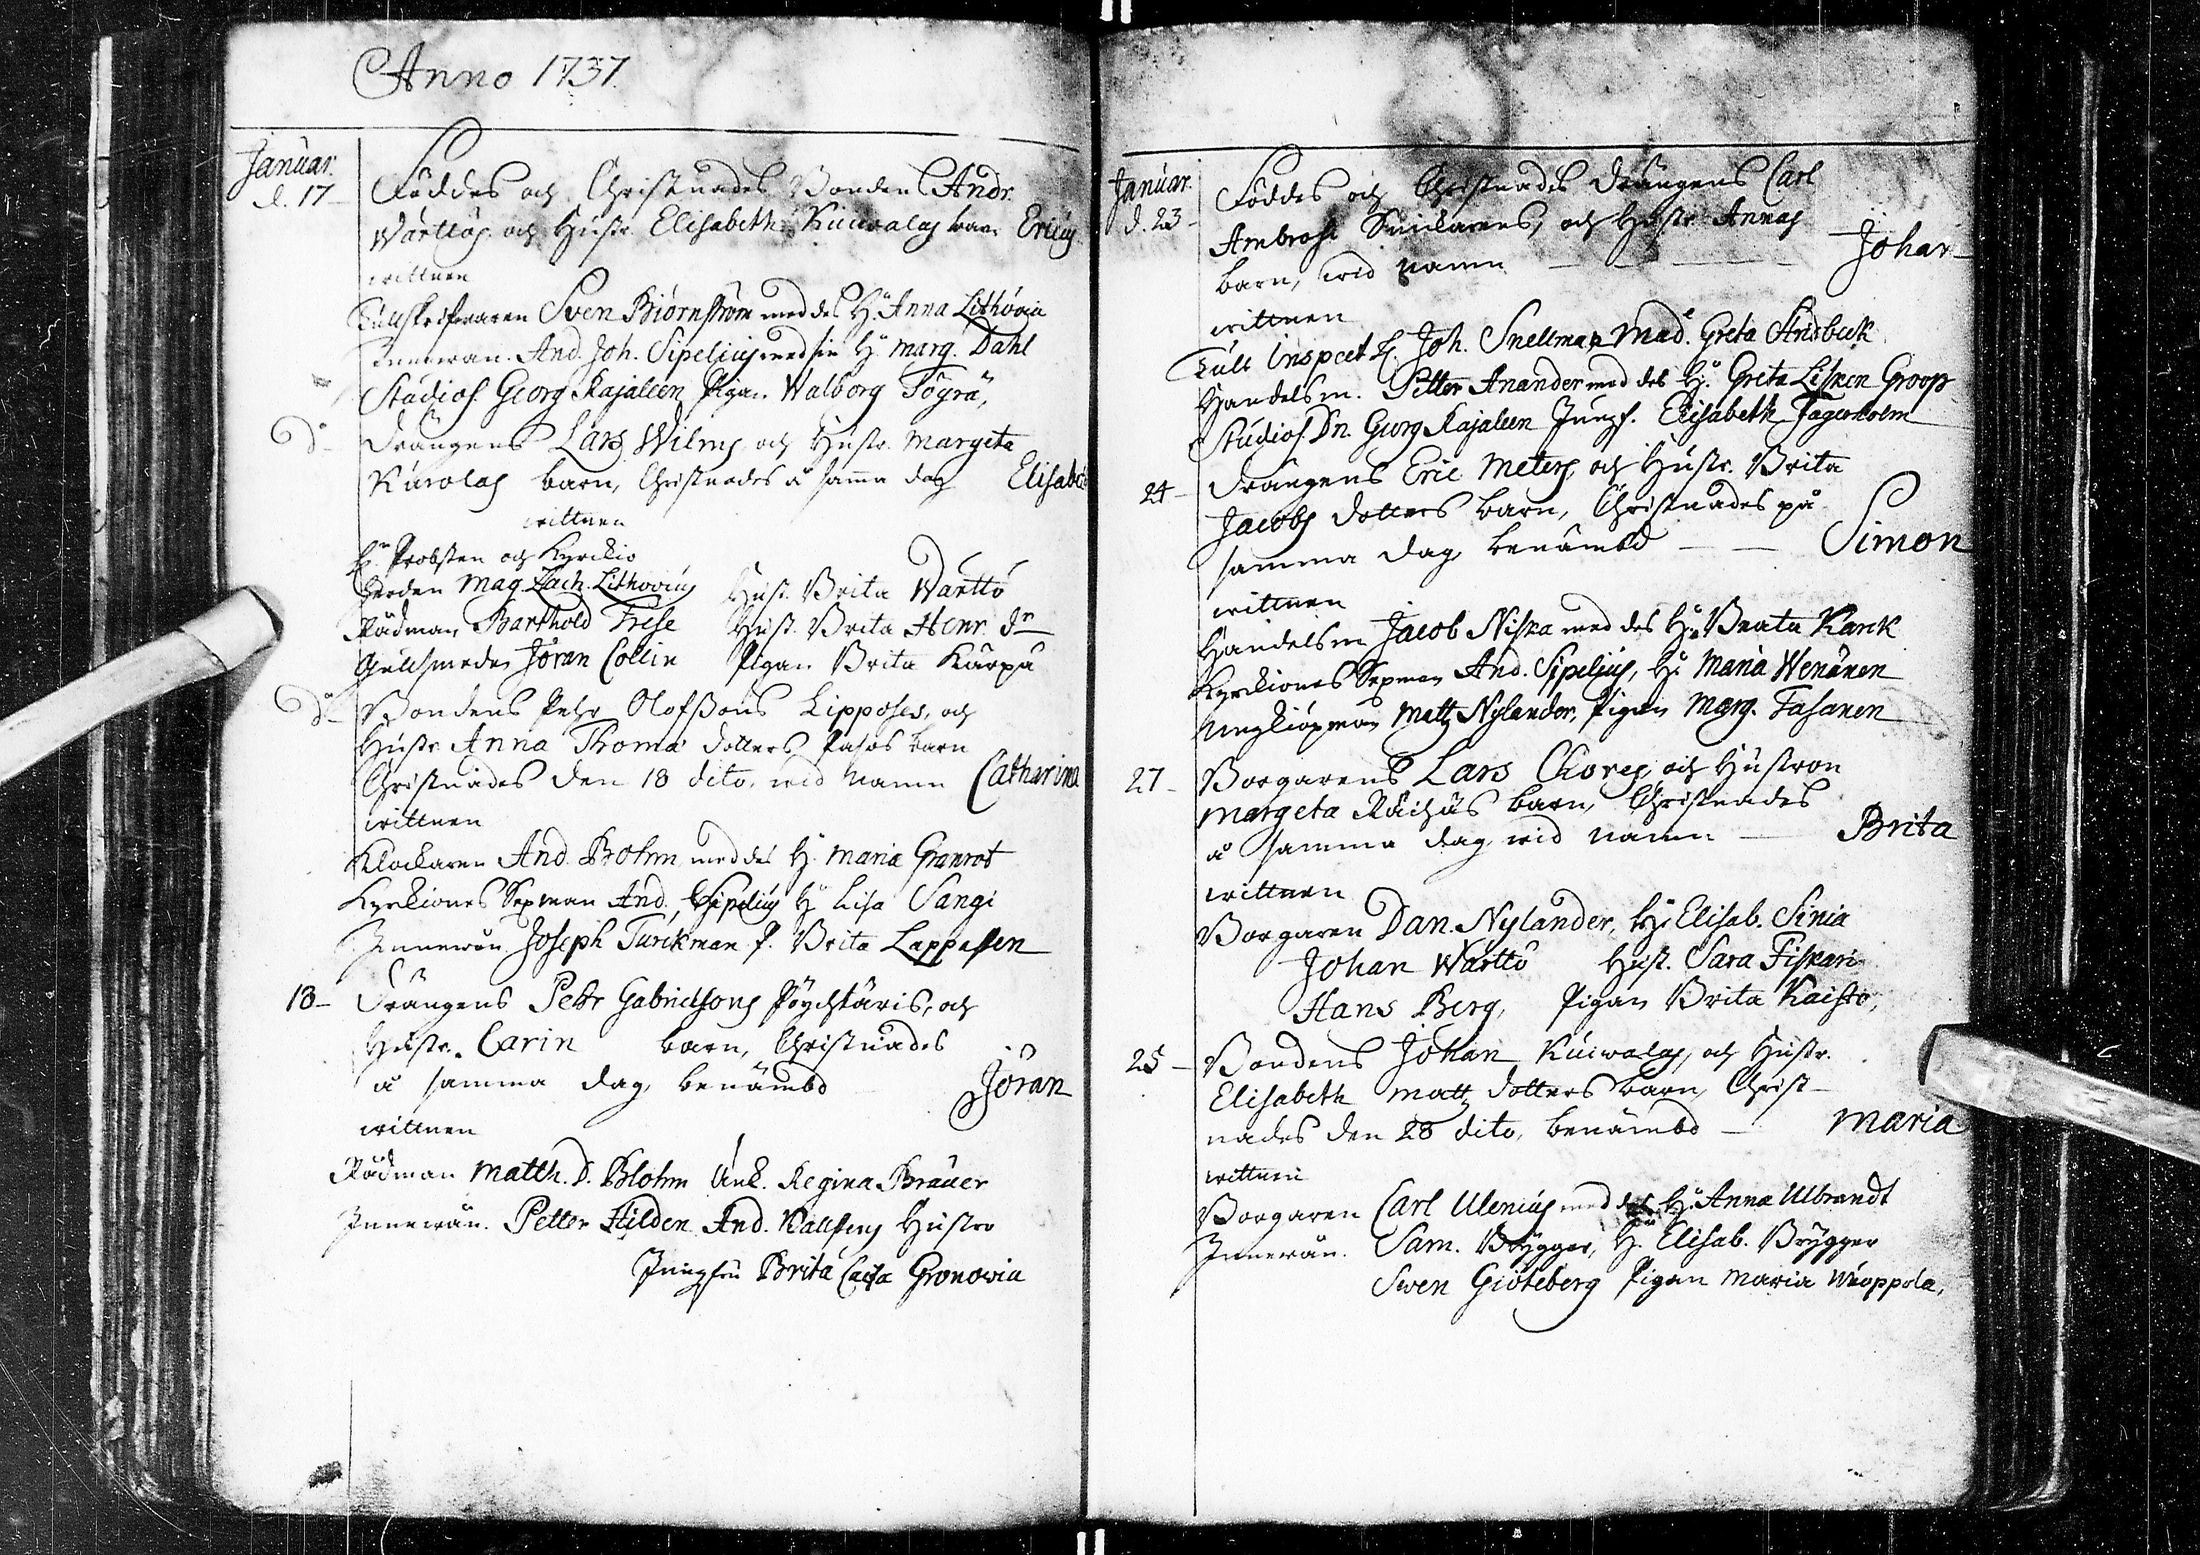 Anno 1737
Januar.
d. 17 Föddes och Christnades Bondens Andr.
Warttös och Hustr. Elisabeth Kuiwalas barn Ericus
wittnen
Tullskrifwaren Sven Biörnström med des H. Anna Lithovia
Innewån. And. Joh. Sipelius med sin H. Marg. Dahl
Studios Georg Kajaleen Pigan Walborg Tögrä,
do Drängens Lars Wilms och Hustr. Margeta
Kurolas barn, Christnades å samma dag Elisabet
wittnen
Hr Probsten och Kyrckio
herden Mag. Zach. Lithovius Hust. Brita Warttö
Rådman Barthold Frese Hust. Brita Henr. dr
Gullsmeden Jöran Collin Pigan Brita Karpa
do Bondens Pehr Olofssons Lipposes, och
Hustr Anna Thomæ dotters Pasos barn
Christnades den 18 dito, wid namn Catharina
wittnen
Klockaren And. Bohm med des H. Maria Granrot
Kyrkiones Sexman And. Sipelius H Lisa Sangi
Innewån. Joseph Turckman P. Brita Lappalen
18 Drängens Pehr Gabrielsons Pöychtäris, och
Hustr. Carin barn, Christnades
å samma dag, benämbd Jöran
wittnen
Rådman Matth. D. Blohm Enk. Regina Bräuer
Innewån. Petter Hilden And. Kallens Hustro
Jungfru Brita Caisa Gronowia
Januar.
d. 23 Föddes och Christnades Drängens Carl
Ambrosi Snickarens, och Hustr Annas
barn, wid namn Johan
wittnen
Tull Inspect Hr. Joh. Snellman Mad. Greta Stridbeck
Handelsm. Petter Anander med des H. Greta Lisken Groop
Studios. Dn. Georg Kajaleen Jungf. Elisabeth Fagerholm
24 Drängens Eric Meters och Hustr. Brita
Jacobs dotters barn, Christnades på
samma dag, benämbd Simon
wittnen
Handelsm Jacob Niska med des H. Beata Kank
Kyrckiones Sexman And. Sipelius, H. Maria Wenänen
Ungkiöpman Matts Nylander, Pigan Marg. Fasanen
27 Borgarens Lars Chores och Hustron
Margeta Räihäs barn, Christnades
å samma dag wid namn Brita
wittnen
Borgaren Dan. Nylander, H. Elisab. Sinia
Johan Warttö Hust. Sara Fiskari
Hans Berg, Pigan Brita Kaisto,
25 Bondens Johan Kuiwalas, och Hustr.
Elisabeth Matts dotters barn, Christ-
nades den 28 dito, benämbd Maria
wittnen
Borgaren Carl Ulenius med des H. Anna Ulbrandt
Innewån. Sam. Brygger, H. Elisab. Brygger
Swen Giöteberg Pigan Maria Wuoppola,